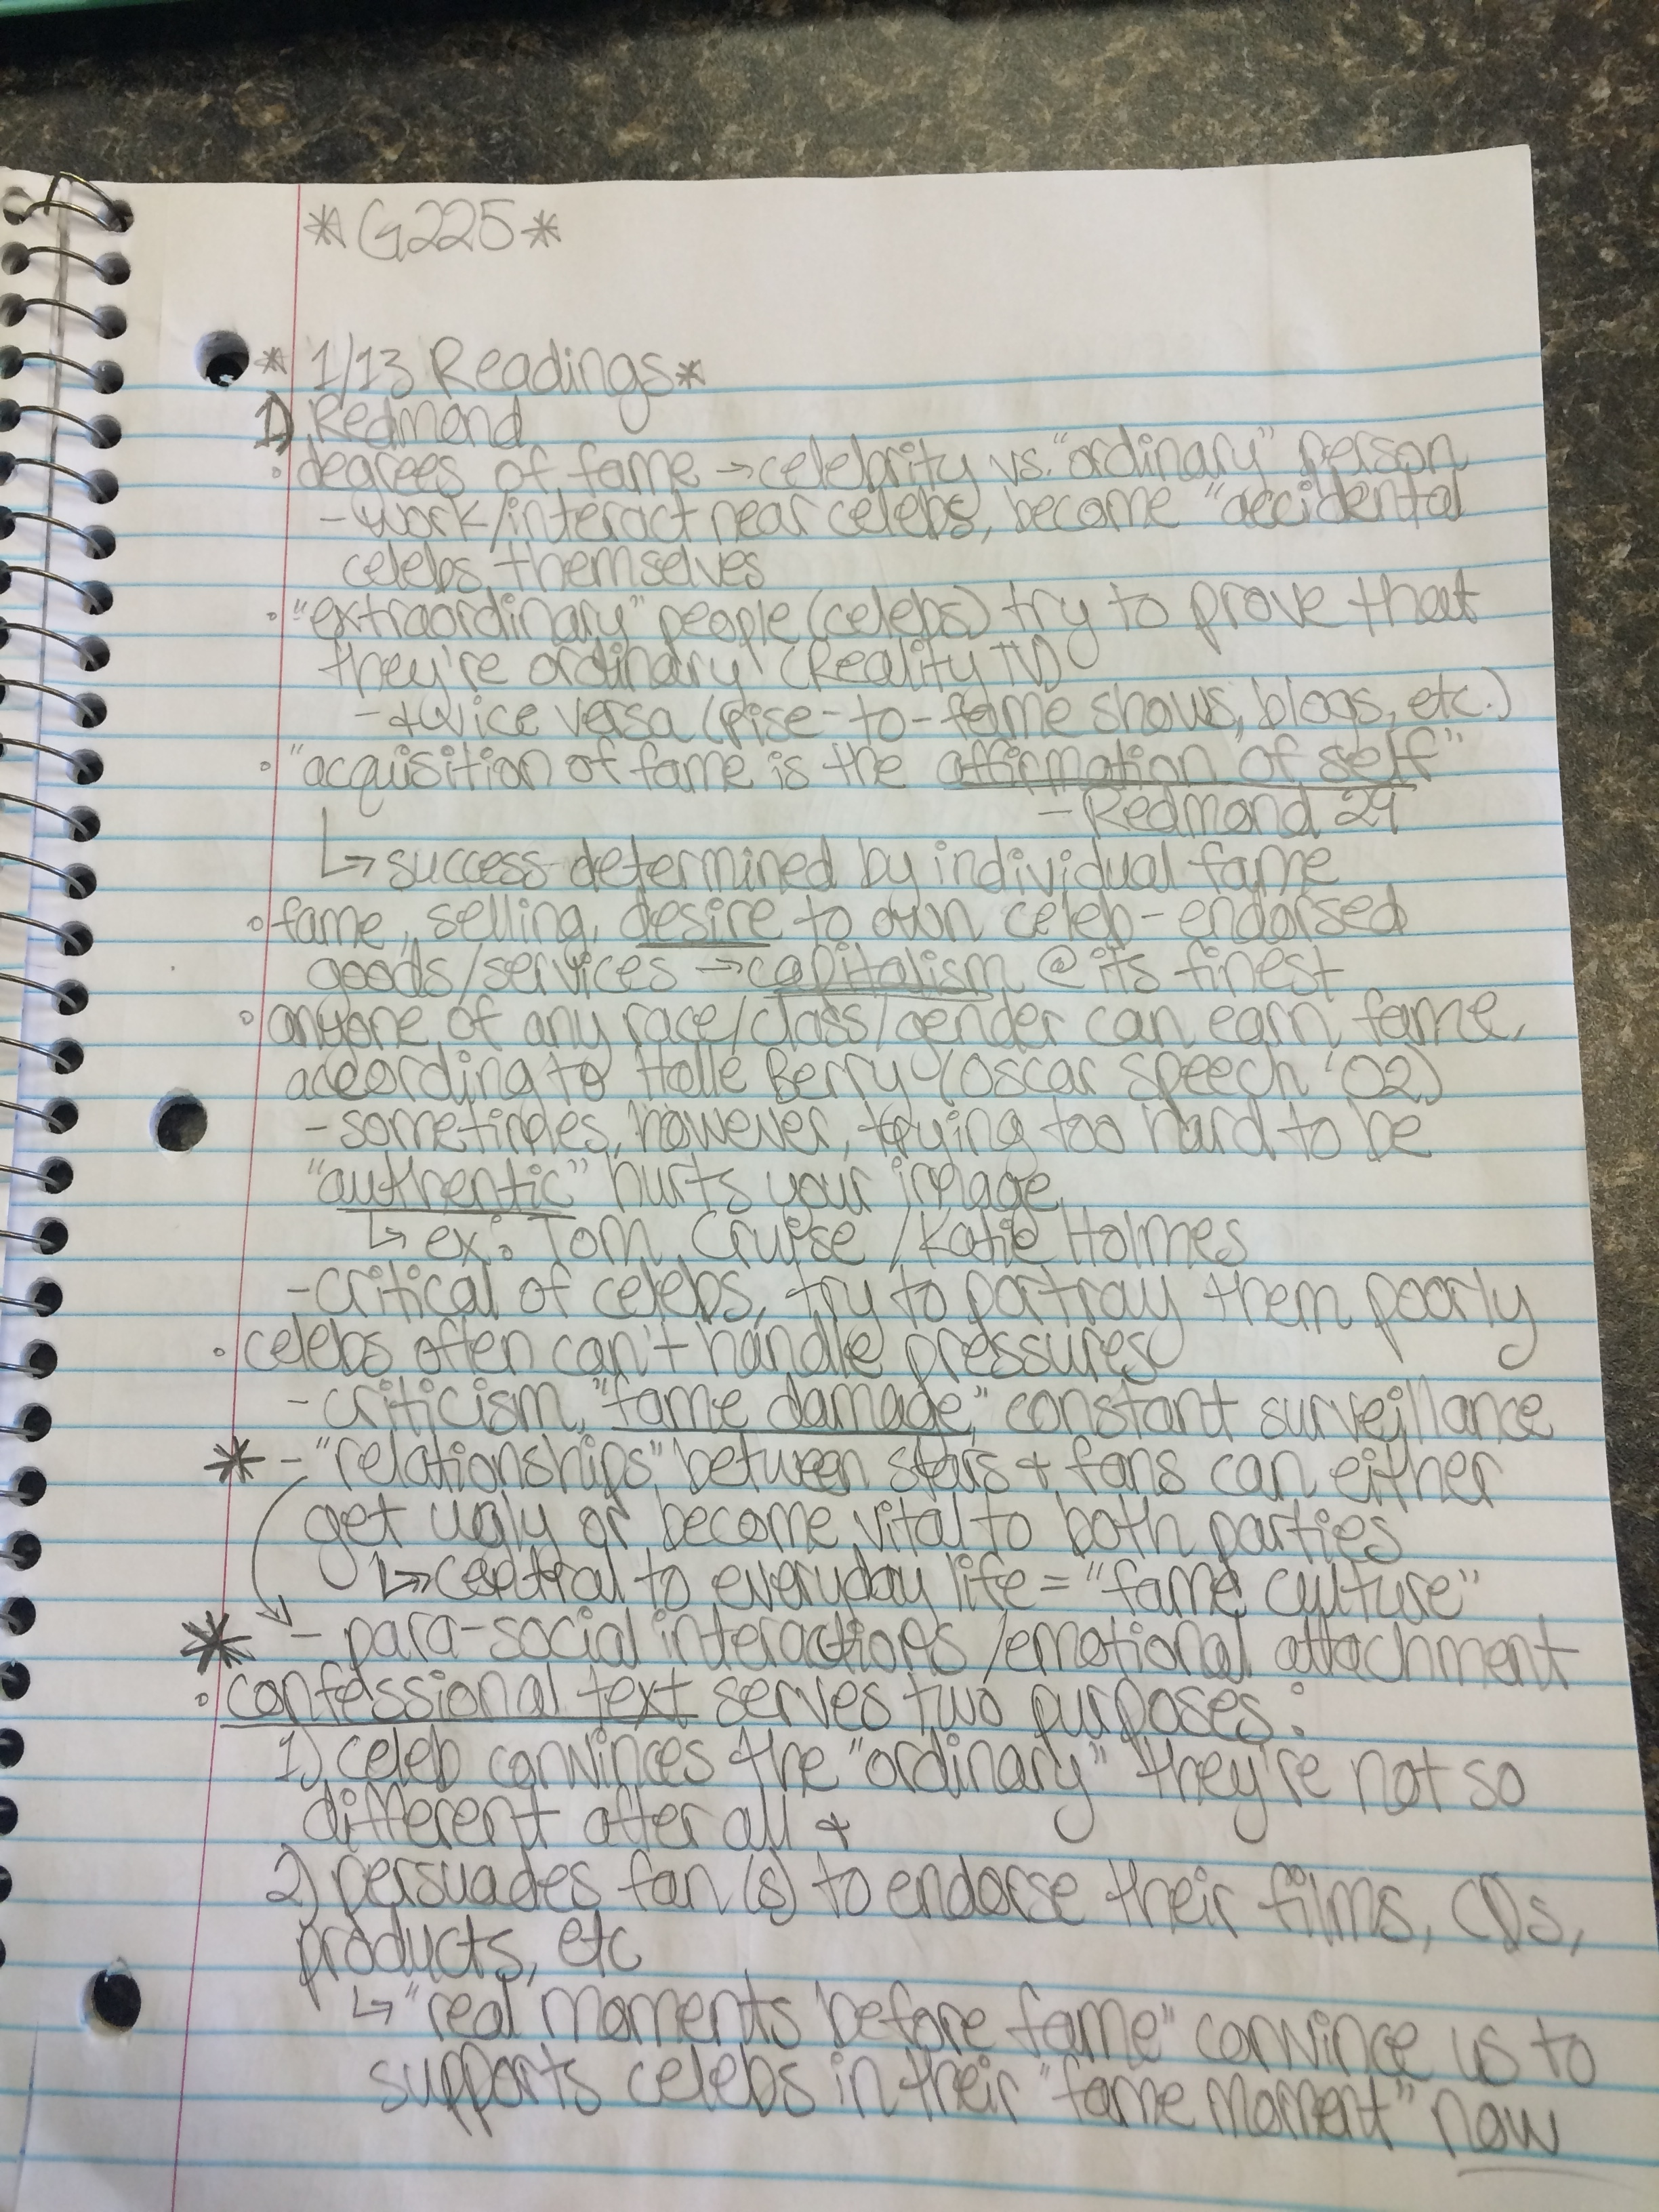 *G225*
* 1/13 Readings*
1) Redmond
• degrees of fame → celebrity vs. "ordinary" person
- work/interact near celebs, become "accidental
celebs themselves
• "extraordinary" people (celebs) try to prove that
they're ordinary (Reality TV)
- + vice versa (rise-to-fame shows, blogs, etc.)
• "acquisition of fame is the affirmation of self"
- Redmond 29
↳ success determined by individual fame
• fame, selling, desire to own celeb-endorsed
goods/services → capitalism @ its finest
• anyone of any race/class/gender can earn fame,
according to Halle Berry (Oscar speech '02)
- sometimes, however, trying too hard to be
"authentic" hurts your image
↳ ex: Tom Cruise/Katie Holmes
- critical of celebs, try to portray them poorly
• celebs often can't handle pressures
- criticism, "fame damage," constant surveillance
* - "relationships" between stars + fans can either
get ugly or become vital to both parties
↳ central to everyday life = "fame culture"
* - para-social interactions/emotional attachment
• confessional text serves two purposes:
1) celeb convinces the "ordinary" they're not so
different after all +
2) persuades fan(s) to endorse their films, CDs,
products, etc
↳ "real moments before fame" convince us to
supports celebs in their "fame moment" now